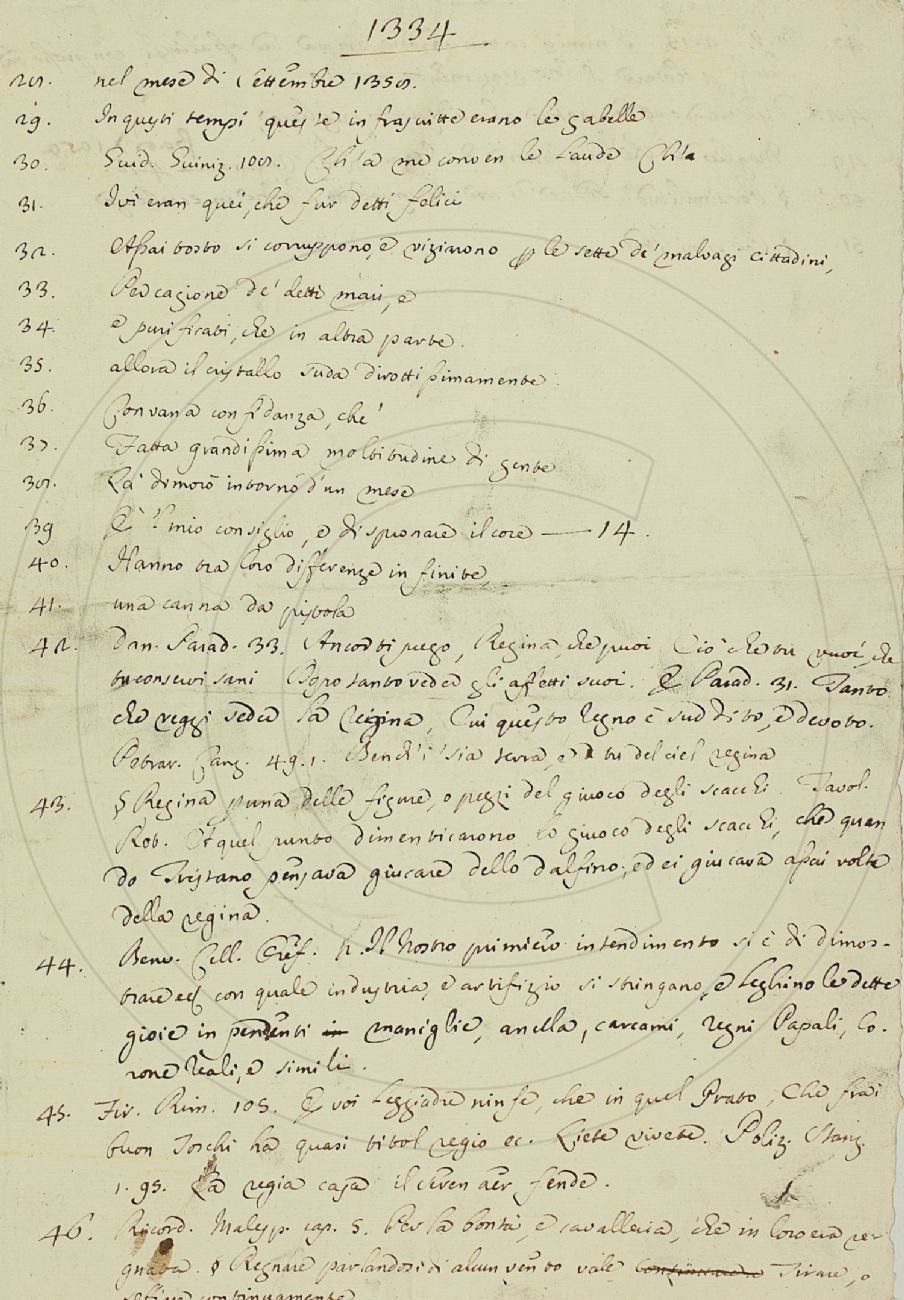 1334
28. nel mese di Settembre 1358.
29. In questi tempi queste infrascritte erano le gabelle
30. Guid. Guiniz. 108. Ch' a me conven le laude Ch' a
31. Ivi eran quei, che fur detti felici
32. Assai tosto si corruppono, e viziarono p le sette de' malvagi cittadini,
33. Per cagione de' detti mari, e
34. e purificati, che in altra parte.
35. allora il cristallo suda dirottissimamente
36. Con vana confidanza, che
37. Fatta grandissima moltitudine di gente
38. Là dimorò intorno d'un mese
39 E 'l mio consiglio, e di spronare il core — 14.
40. Hanno tra loro differenze infinite,
41. una canna da pistola
42. Dan. Parad. 33. Ancor ti priego, Regina, che puoi Ciò che tu vuoi, che
tu conservi sani Dopo tanto veder gli affetti suoi. E Parad. 31. Tanto
che veggi seder la regina, Cui questo regno è suddito, e devoto.
Petrar. Canz. 49. 1. Bench' i' sia terra, e tu del ciel regina
43. § Regina p una delle figure, o pezzi del giuoco degli scacchi. Tavol.
Rit. A quel punto dimenticarono lo giuoco degli scacchi, che quan
do Tristano pensava giucare dello dalfino; ed ei giucava assai volte
della regina.
44. Benv. Cell. Oref. Il nostro primiero intendimento si è di dimos-
trare con quale industria, e artifizio si stringano, e leghino le dette
gioie in pendenti maniglie, anella, carcami, regni Papali, Co-
rone reali, e simili.
45. Fir. Rim. 105. E voi leggiadre ninfe, che in quel Prato, Che fra i
buon Toschi ha quasi titol regio ec. Liete vivete. Poliz. Stanz.
1. 95. La regia casa il seren aer fende.
46. Ricord. Malesp. cap. 5. Per la bontà, e cavalleria, che in loro era re-
gnata. § Regnare parlandosi di alcun vento vale Tirare, o
continuamente